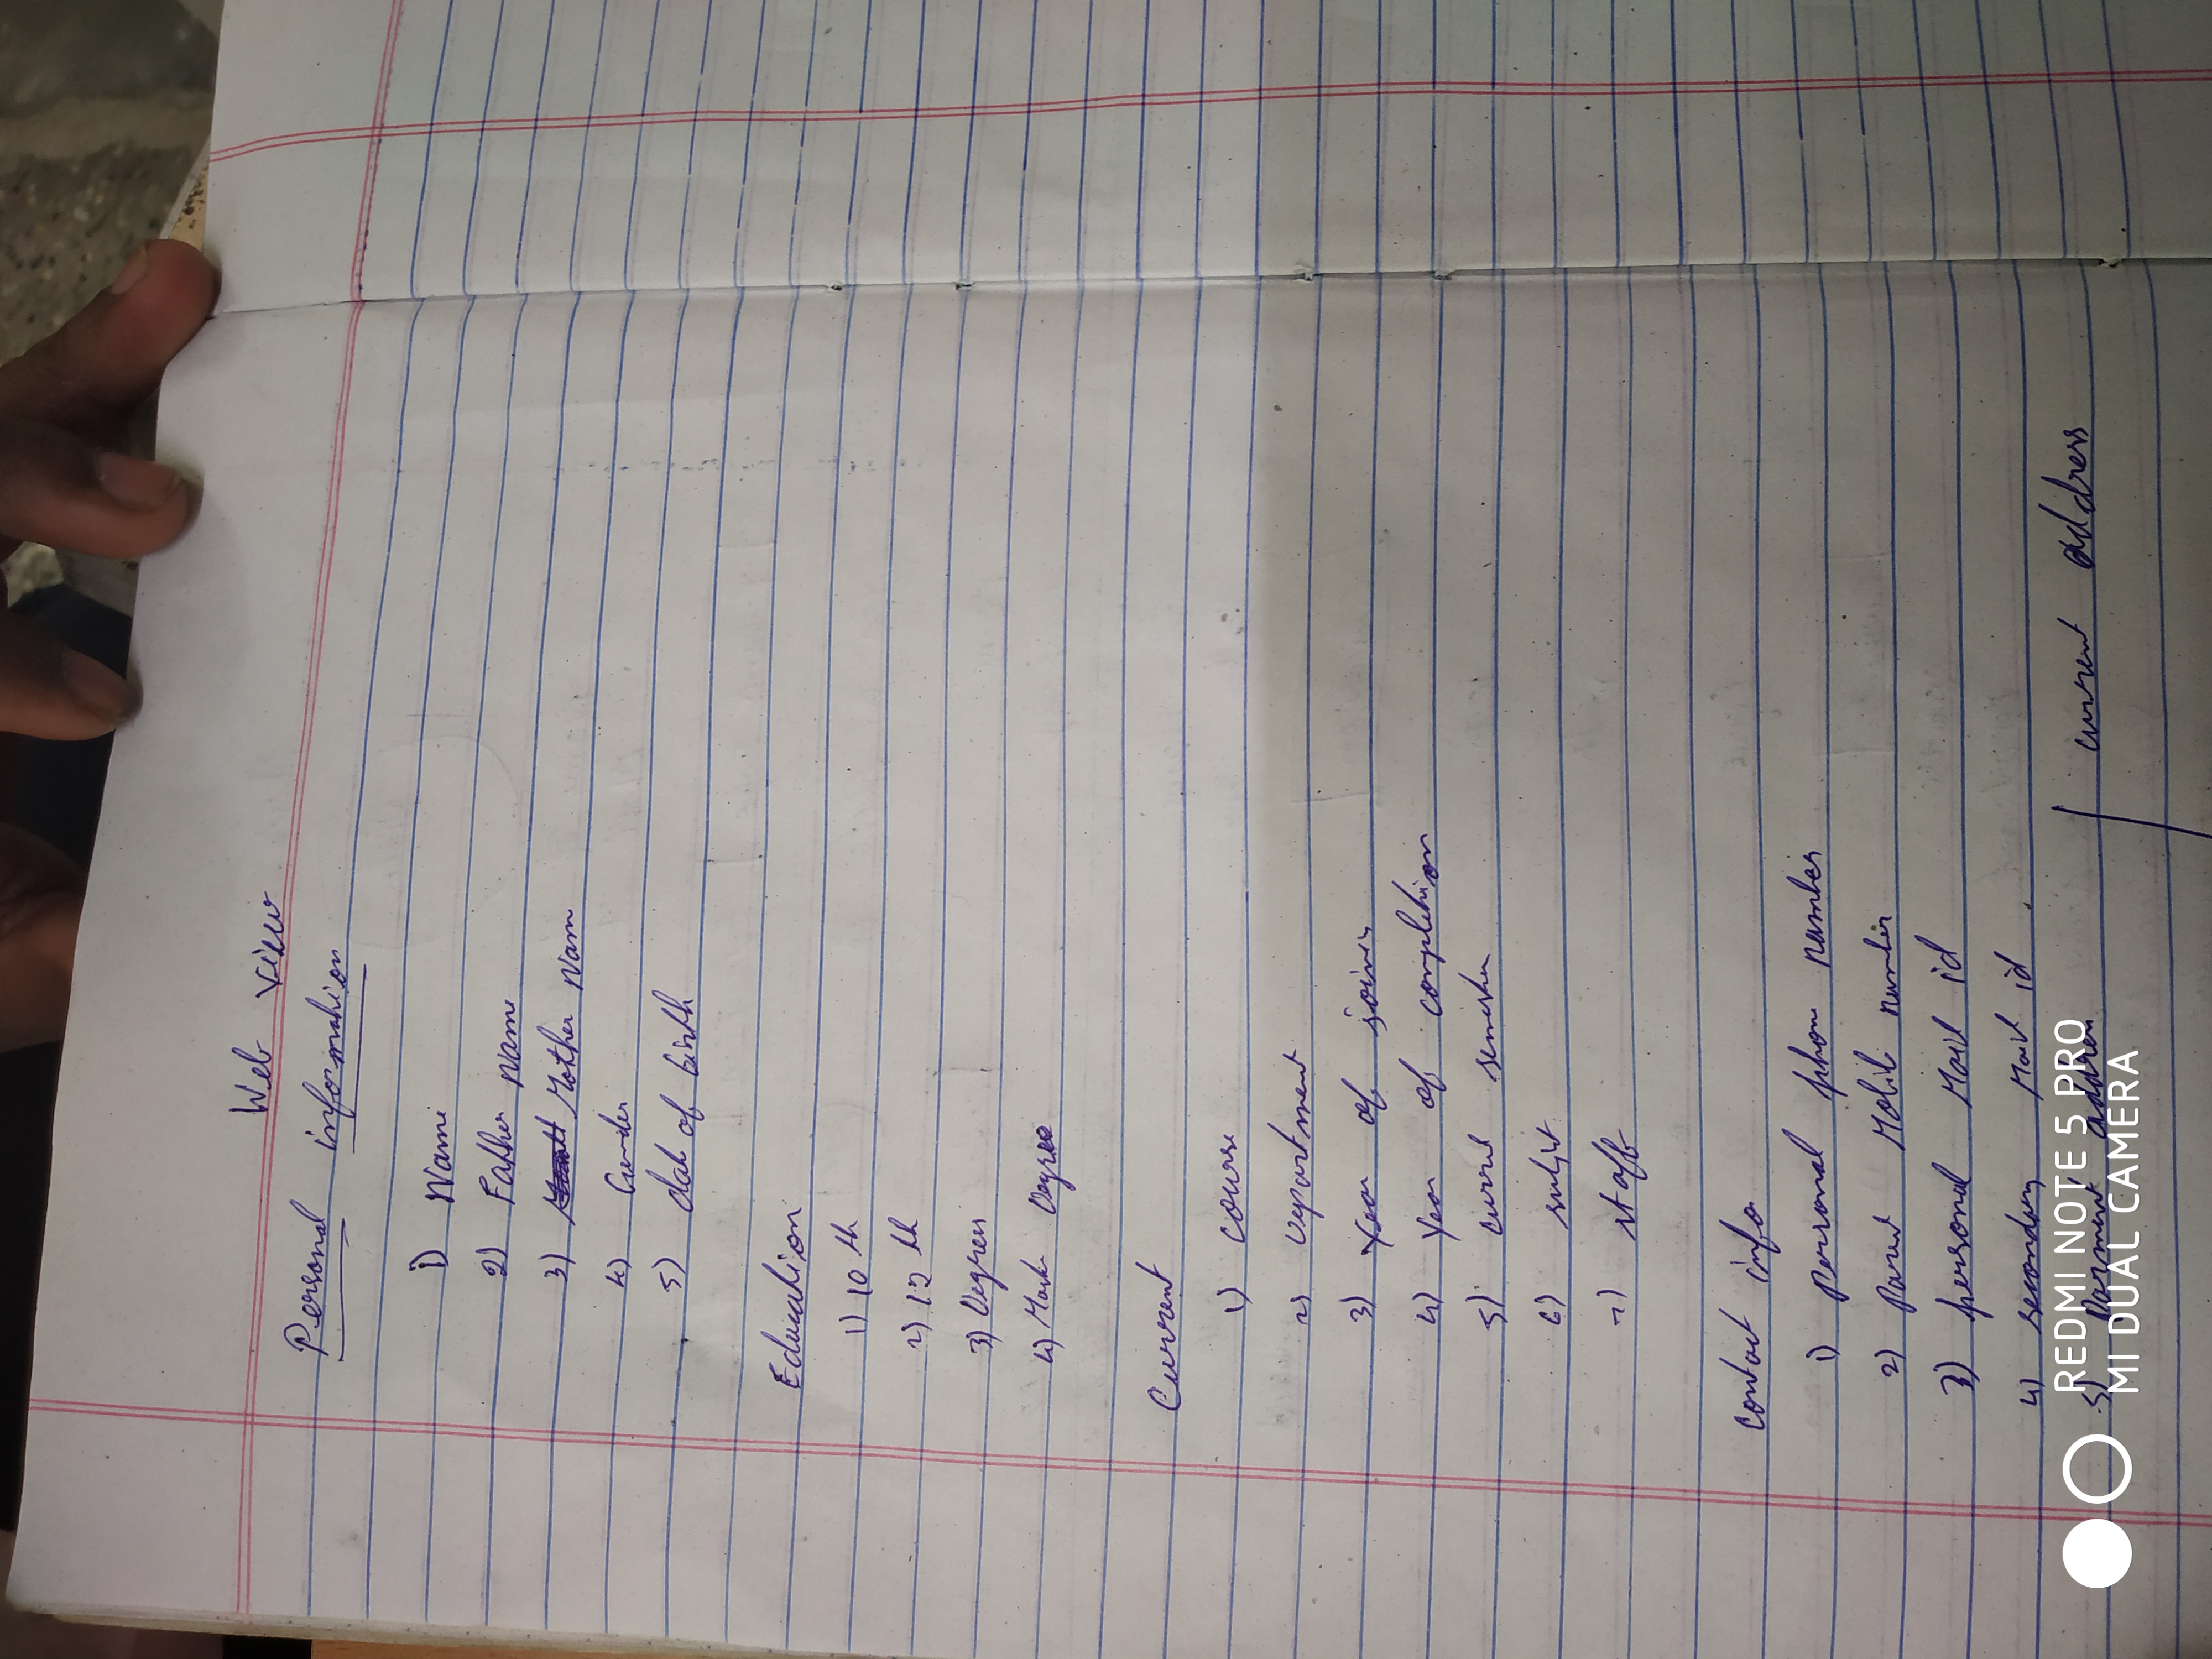 Web View
Personal information
1) Name
2) Father Name
3) Mother Nam
4) Gender
5) dat of birth
Education
1) 10 th
2) 12 th
3) Degree
4) Mark Degree
Current
1) course
2) Department
3) Year of joining
4) Year of completion
5) current
6)
7) staff
contact info
1) Personal phone number
2) Mobile number
3) personal Mail id
4) secondary Mail id
5) address / current address
REDMI NOTE 5 PRO
MI DUAL CAMERA